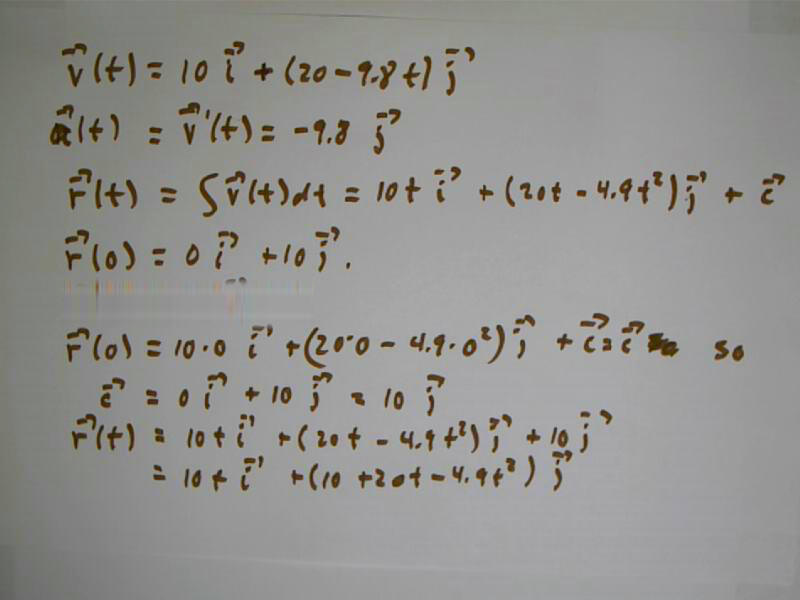 v⃗(t) = 10 i⃗ + (20 - 9.8t) j⃗
a⃗(t) = v⃗'(t) = -9.8 j⃗
r⃗(t) = ∫ v⃗(t)dt = 10t i⃗ + (20t - 4.9t²) j⃗ + c⃗
r⃗(0) = 0 i⃗ + 10 j⃗.
r⃗(0) = 10·0 i⃗ + (20·0 - 4.9·0²) j⃗ + c⃗ = c⃗ so
c⃗ = 0 i⃗ + 10 j⃗ = 10 j⃗
r⃗(t) = 10t i⃗ + (20t - 4.9t²) j⃗ + 10 j⃗
= 10t i⃗ + (10 + 20t - 4.9t²) j⃗